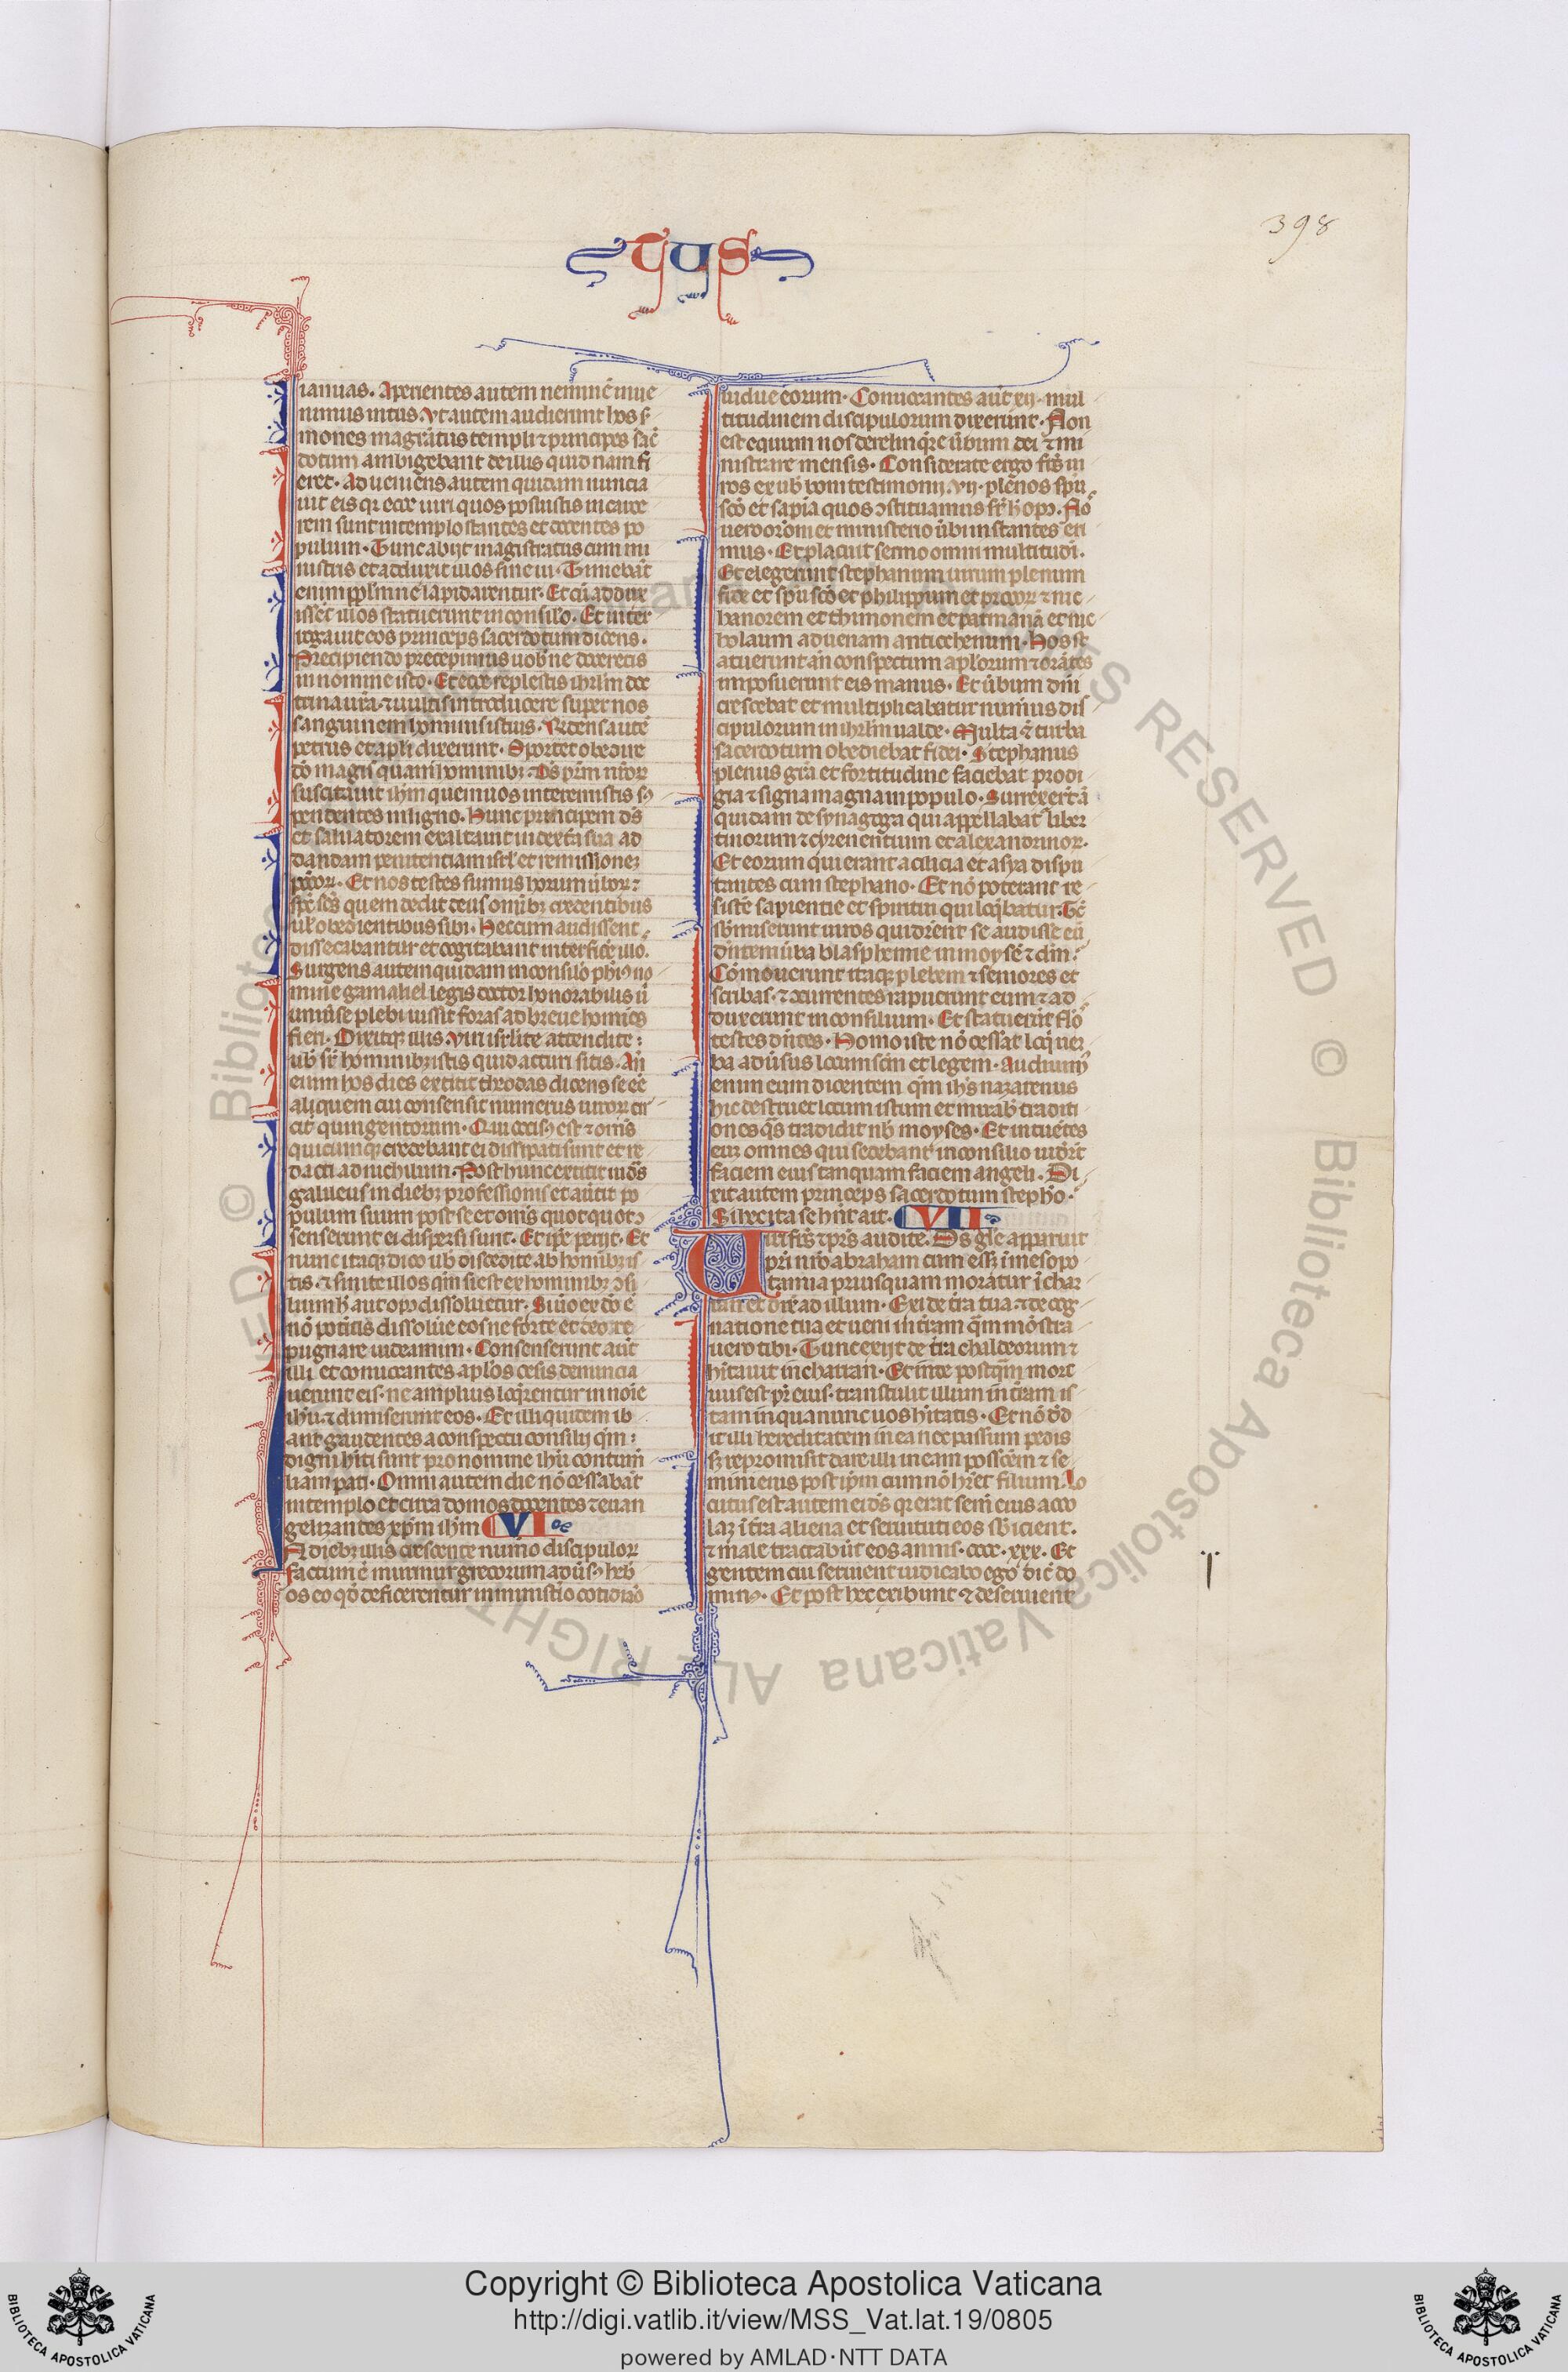 TUS
398
ianuas. Aperientes autem neminē inue
nimus intus. Vt autem audierunt hos s̾
mones magrātus templi ⁊ principes sac̄
dotum ambigebant de illis quid nam fi
eret. Adueniens autem quidam nuncia
uit eis qꝛ ecce uiri quos posuistis in carce
rem sunt in templo stantes et docentes po
pulum. Tunc abijt magistratus cum mi
nistris et adduxit illos sine ui. Timebāt
enim pplm ne lapidarentur. Et cū addux
issēt illos statuerunt in consilio. Et inter
rogauit eos princeps sacerdotum dicens.
Precipiendo precepimus uob̄ ne doceretis
in nomine isto. Et ecce replestis ihrlm doc
trina ur̄a. ⁊ uultis introducere super nos
sanguinem hominis istius. Rn̄dens autē
petrus et apl̄i dixerunt. Oportet obedire
dō magis quam hominibꝫ. Ds pr̄m nr̄oꝝ
suscitauit ihm̄ quem uos interemistis sꝰ
pendentes in ligno. Hunc principem ds̄
et saluatorem exaltauit in dext̄a sua ad
dandam penitentiam isrl̄ et remissionem
pccōꝝ. Et nos testes sumus horum ūboꝝ ⁊
sp̄c sc̄s quem dedit deus omībꝫ credentibus
ul̄ obedientibus sibi. Hec cum audissent
dissecabantur et cogitabant interficē illos.
Surgens autem quidam in consilio phisꝰ no
mine gamaliel legis doctor honorabilis ū
uniūse plebi iussit foras ad breue homines
fieri. Dixitqꝫ illis. Viri isrl̄ite attendite
uob̄ sr̄ hominibꝫ istis quid acturi sitis. An̄
enim hos dies extitit theodas dicens se eē
aliquem cui consensit numerus uiroꝝ cir
cit̄ quingentorum. Qui occisꝰ est ⁊ om̄s
quicumqꝫ credebant ei dissipati sunt et re
dacti ad nichilum. Post hunc extitit iudas
galileus in diebꝫ professionis et auertit po
pulum suum post se et om̄s quotquot ↄ
senserunt ei dispersi sunt. Et ip̄e perijt. Et
nunc itaqꝫ dico uob̄ discedite ab hominibꝫ is
tis. ⁊ sinite illos qm̄ si est ex hominibꝫ ↄsi
lium h̄ aut opꝰ dissoluetur. Si ū ex dō ē
nō potītis dissoluē eos ne forte et deo re
pugnare uideamini. Consenserunt aut̄
illi et conuocantes apl̄os cesis denuncia
uerunt eis. ne amplius loqrentur in noīe
ihū. ⁊ dimiserunt eos. Et illi quidem ib
ant gaudentes a conspectu consilij qm̄
digni hīti sunt pro nomine ihū contum̄
liam pati. Omni autem die nō cessabāt
in templo et circa domos docentes ⁊ euan
gelizantes xp̄m ihm̄ VI
In diebꝫ illis crescente num̄o discipuloꝝ
factum ē murmur grecorum adūsꝰ heb̄
os eo qd̄ deficerentur in ministio cotidiano
uidue eorum. Conuocantes aut̄ xij. mul
titudinem discipulorum dixerunt. Non
est equum nos derelinqꝛe ūbum dei ⁊ mi
nistrare mensis. Considerate ergo frs̄ ui
ros ex uob̄ boni testimonij. vij. plenos spū
scō et sapīa quos ↄstituamus sr̄ h̄ opꝰ. Nos
uero orōni et ministerio ūbi instantes eri
mus. Et placuit sermo omni multitudī.
Et elegerunt stephanum uirum plenum
fide et spū scō et philippum et procoꝝ ⁊ nic
hanorem et thimonem et parmanā et nic
holaum aduenam antiochenum. Hos st
atuerunt an̄ conspectum apl̄orum ⁊ orātes
imposuerunt eis manus. Et ūbum dn̄i
crescebat et multiplicabatur num̄us dis
cipulorum in ihrlm ualde. Multa ē turba
sacerdotum obediebat fidei. Stephanus
plenus gr̄a et fortitudine faciebat prodi
gia ⁊ signa magna in populo. Surrexer̄t ā
quidam de synagoga qui appellabat̄ liber
tinorum ⁊ cyrenentium et alexandrinoꝝ.
Et eorum qui erant a cilicia et asya dispu
tantes cum stephano. Et nō poterant re
sistē sapientie et spiritui qui loqbatur. Tc̄
sb̄miserunt uiros qui dicerēt se audisse eū
dicntem ūba blasphemie in moysē ⁊ dm̄.
Cōmouerunt itaqꝫ plebem ⁊ seniores et
scribas. ⁊ ↄcurrentes rapuerunt eum ⁊ ad
duxerunt in consilium. Et statuerūt flō
testes dn̄tes. Homo iste nō cessat loqi uer
ba adūsus locum scm̄ et legem. Audiuimꝰ
enim eum dicentem qm̄ ihs̄ nazarenus
hic destruet locum istum et mutab̄ traditi
ones qs̄ tradidit nob̄ moyses. Et intuētes
eum omnes qui sedebant in consilio uider̄t
faciem eius tanquam faciem angeli. Di
xit autem princeps sacerdotum stepho.
Si hec ita se hn̄t ait. VII
Viri frs̄ ⁊ prs̄ audite. Ds glīe apparuit
pri nr̄o abraham cum ess; ī mesopo
tamia priusquam moratur ī char
ran et dix̄ ad illum. Exi de tr̄a tua ⁊ de cog
natione tua et ueni in tr̄am qm̄ mōstra
uero tibi. Tunc exijt de tr̄a chaldeorum ⁊
hītauit in charran. Et inde postqm̄ mort
uus est pr̄ eius. transtulit illum in tr̄am is
tam in qua nunc uos hītatis. Et nō ded
it illi hereditatem in ea nec passum pedis
sꝫ repromisit dare illi in eam possc̄em ⁊ se
mini eius post ip̄m cum nō hr̄et filium. Lo
cutus est autem ei ds̄ qꝛ erit sem̄ eius acco
la; ī tr̄a aliena et seruituti eos sb̄icient.
⁊ male tractabūt eos annis. cccc. xxx. Et
gentem cui seruient iudicabo ego dic̄ do
minꝰ. Et post hec exibunt ⁊ deseruient
Copyright © Biblioteca Apostolica Vaticana
http://digi.vatlib.it/view/MSS_Vat.lat.19/0805
powered by AMLAD·NTT DATA